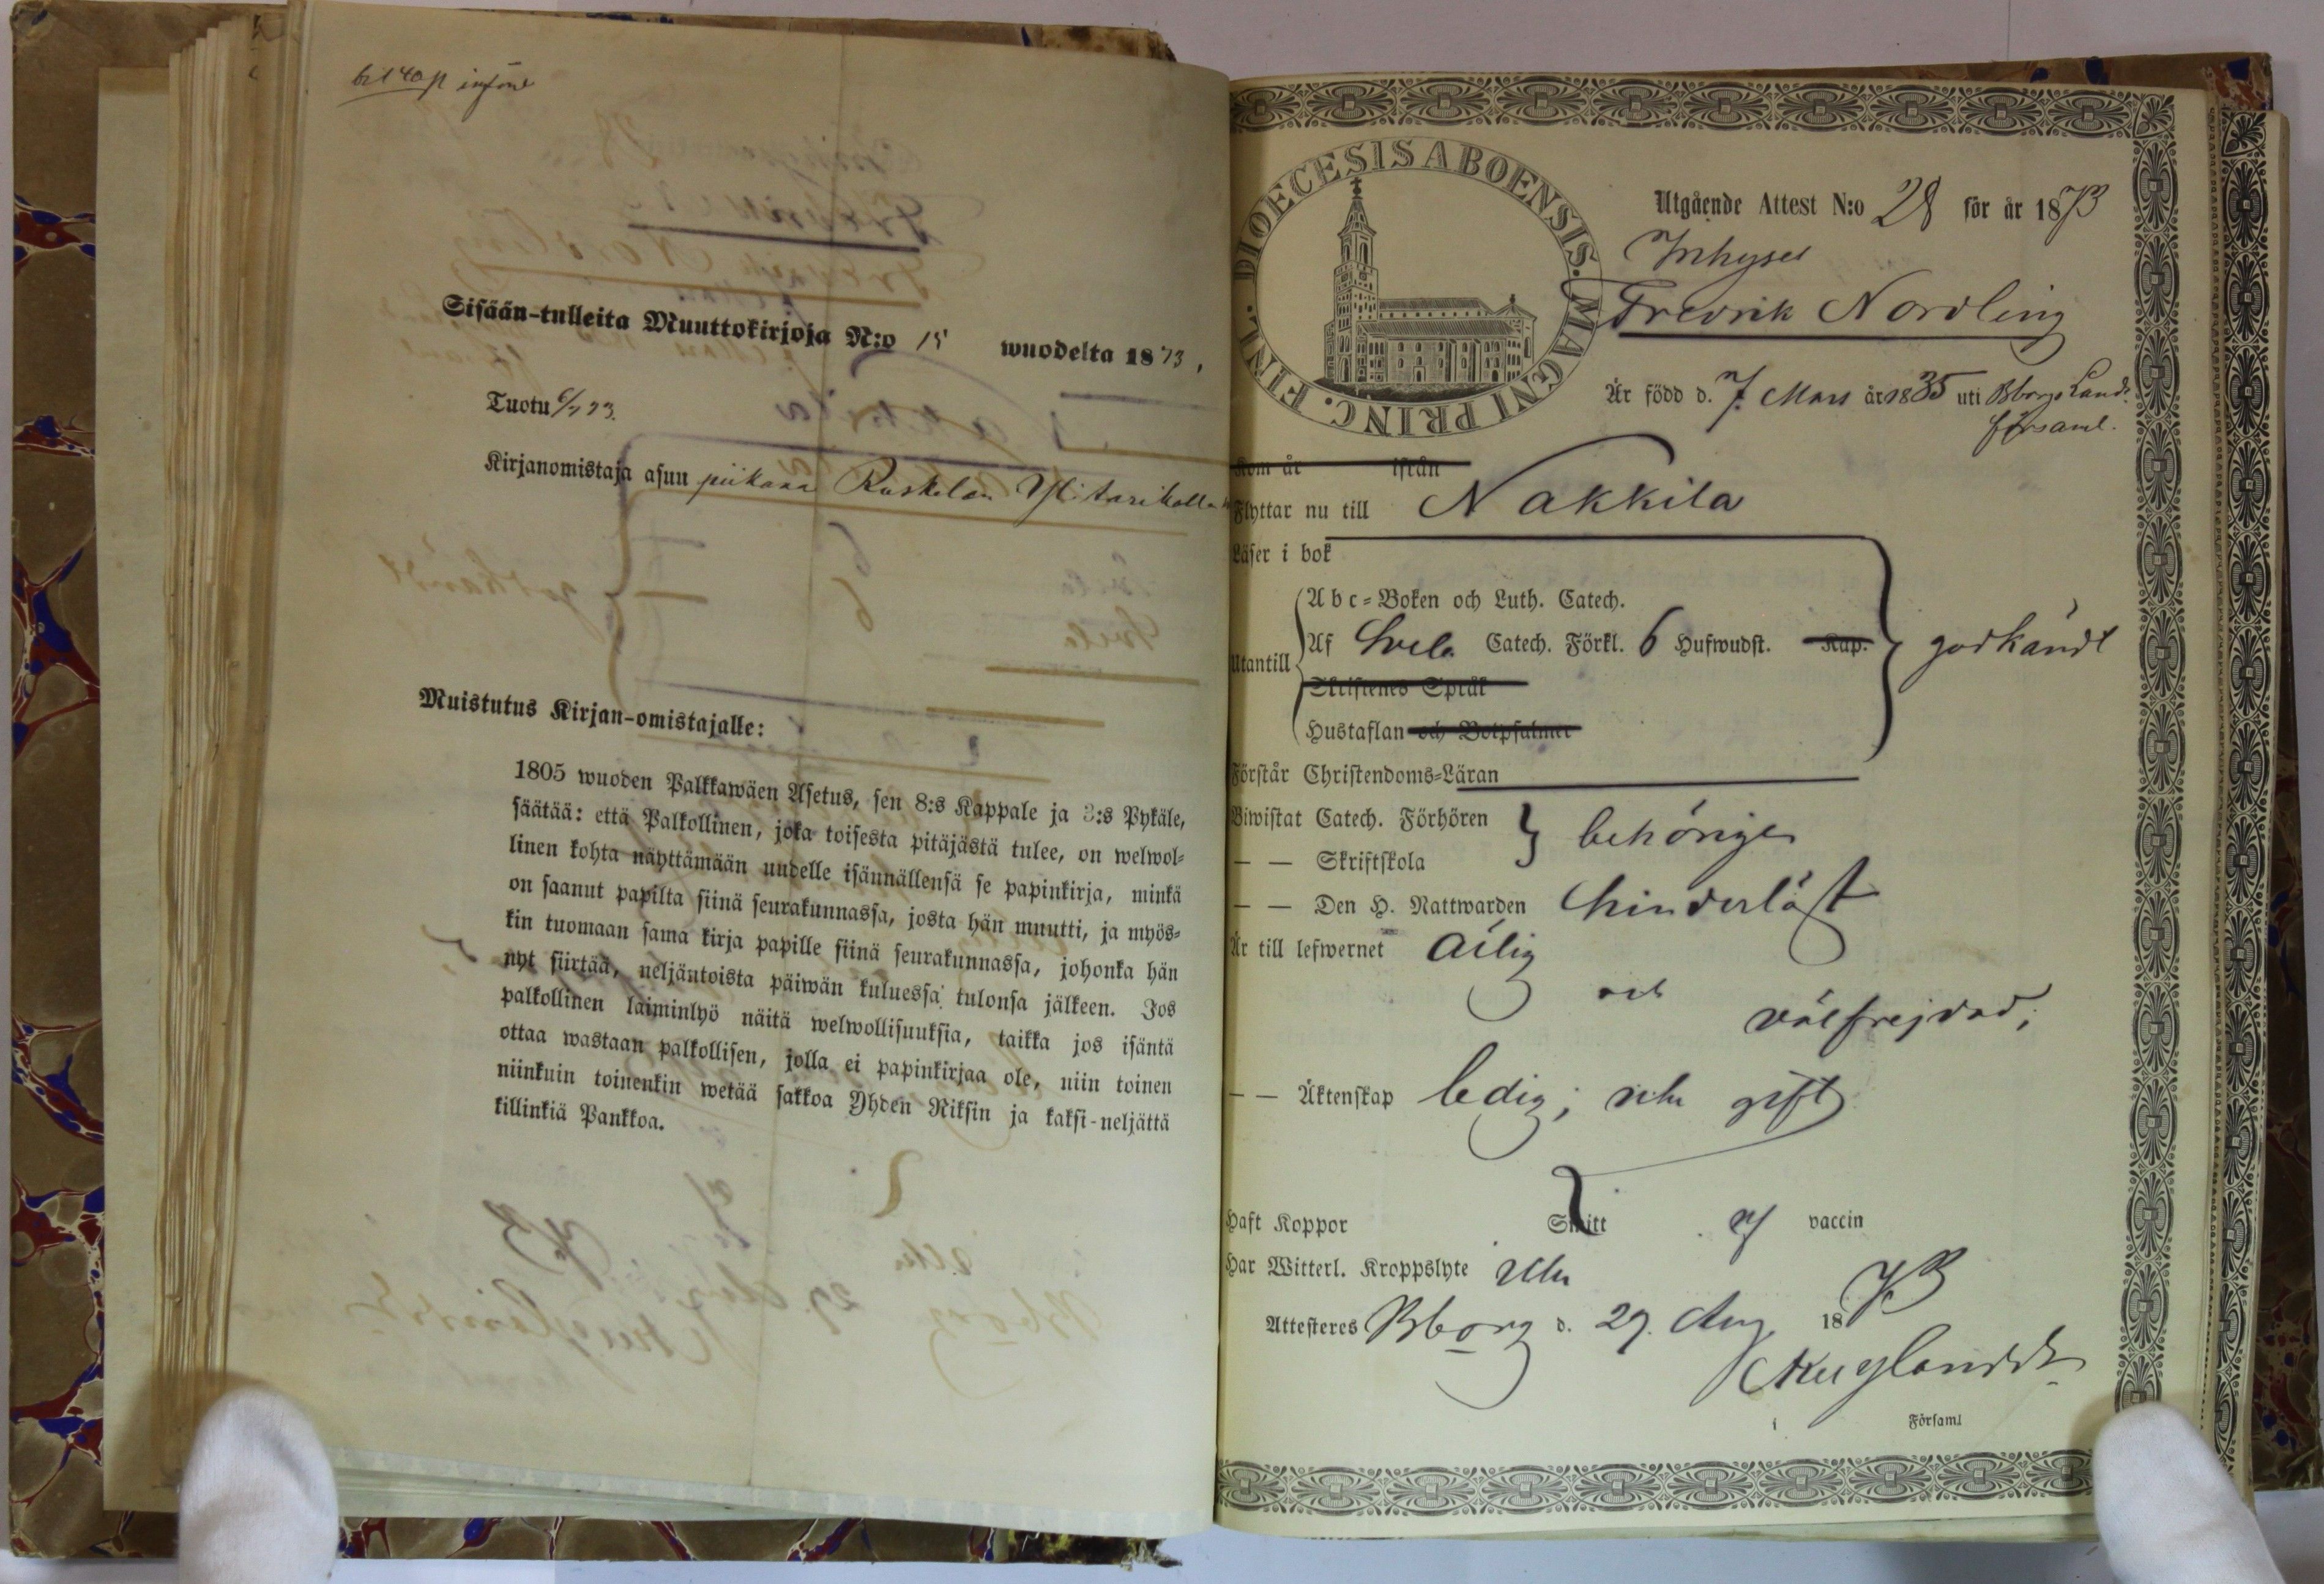 Sisään-tulleita Muuttokirjoja N:o 15 wuodelta 1873,
Tuotu
Kirjanomistaja asuu piikana Ruskelan
Muistutus Kirjan-omistajalle:
1805 wuoden Palkkawäen Asetus, sen 8:s Kappale ja 3:s Pykäle,
säätää: että Palkollinen, joka toisesta pitäjästä tulee, on welwol-
linen kohta näyttämään uudelle isännällensä se papinkirja, minkä
on saanut papilta siinä seurakunnassa, josta hän muutti, ja myös-
kin tuomaan sama kirja papille siinä seurakunnassa, johonka hän
nyt siirtää, neljäntoista päiwän kuluessa tulonsa jälkeen. Jos
palkollinen laiminlyö näitä welwollisuuksia, taikka jos isäntä
ottaa wastaan palkollisen, jolla ei papinkirjaa ole, niin toinen
niinkuin toinenkin wetää sakkoa Yhden Riksin ja kaksi-neljättä
killinkiä Pankkoa.
FINL. DIOECESIS ABOENSIS. MAGNI PRINC.
Utgående Attest N:o 28 för år 1873
Inhyses
Fredrik Nordling
Är född d. 7 Mars år 1835 uti Bborgs Landt
församl.
Kom år ifrån
Flyttar nu till Nakkila
Läser i bok
Abc-Boken och Luth. Catech.
Utantill Af hela Catech. Förkl. 6 Hufwudst. Kap. godkändt
Skriftenes Språk
Hustaflan och Botpsalmer
Förstår Christendoms-Läran
Biwistat Catech. Förhören behörigen
— — Skriftskola
— — Den H. Nattwarden hinderlöst
Är till lefwernet ärlig
och
välfrejdad;
— — Äktenskap ledig; icke gift
Haft Koppor Smitt af vaccin
Har Witterl. Kroppslyte icke
Attesteres Bborg d. 29. Aug. 1873
i Församl